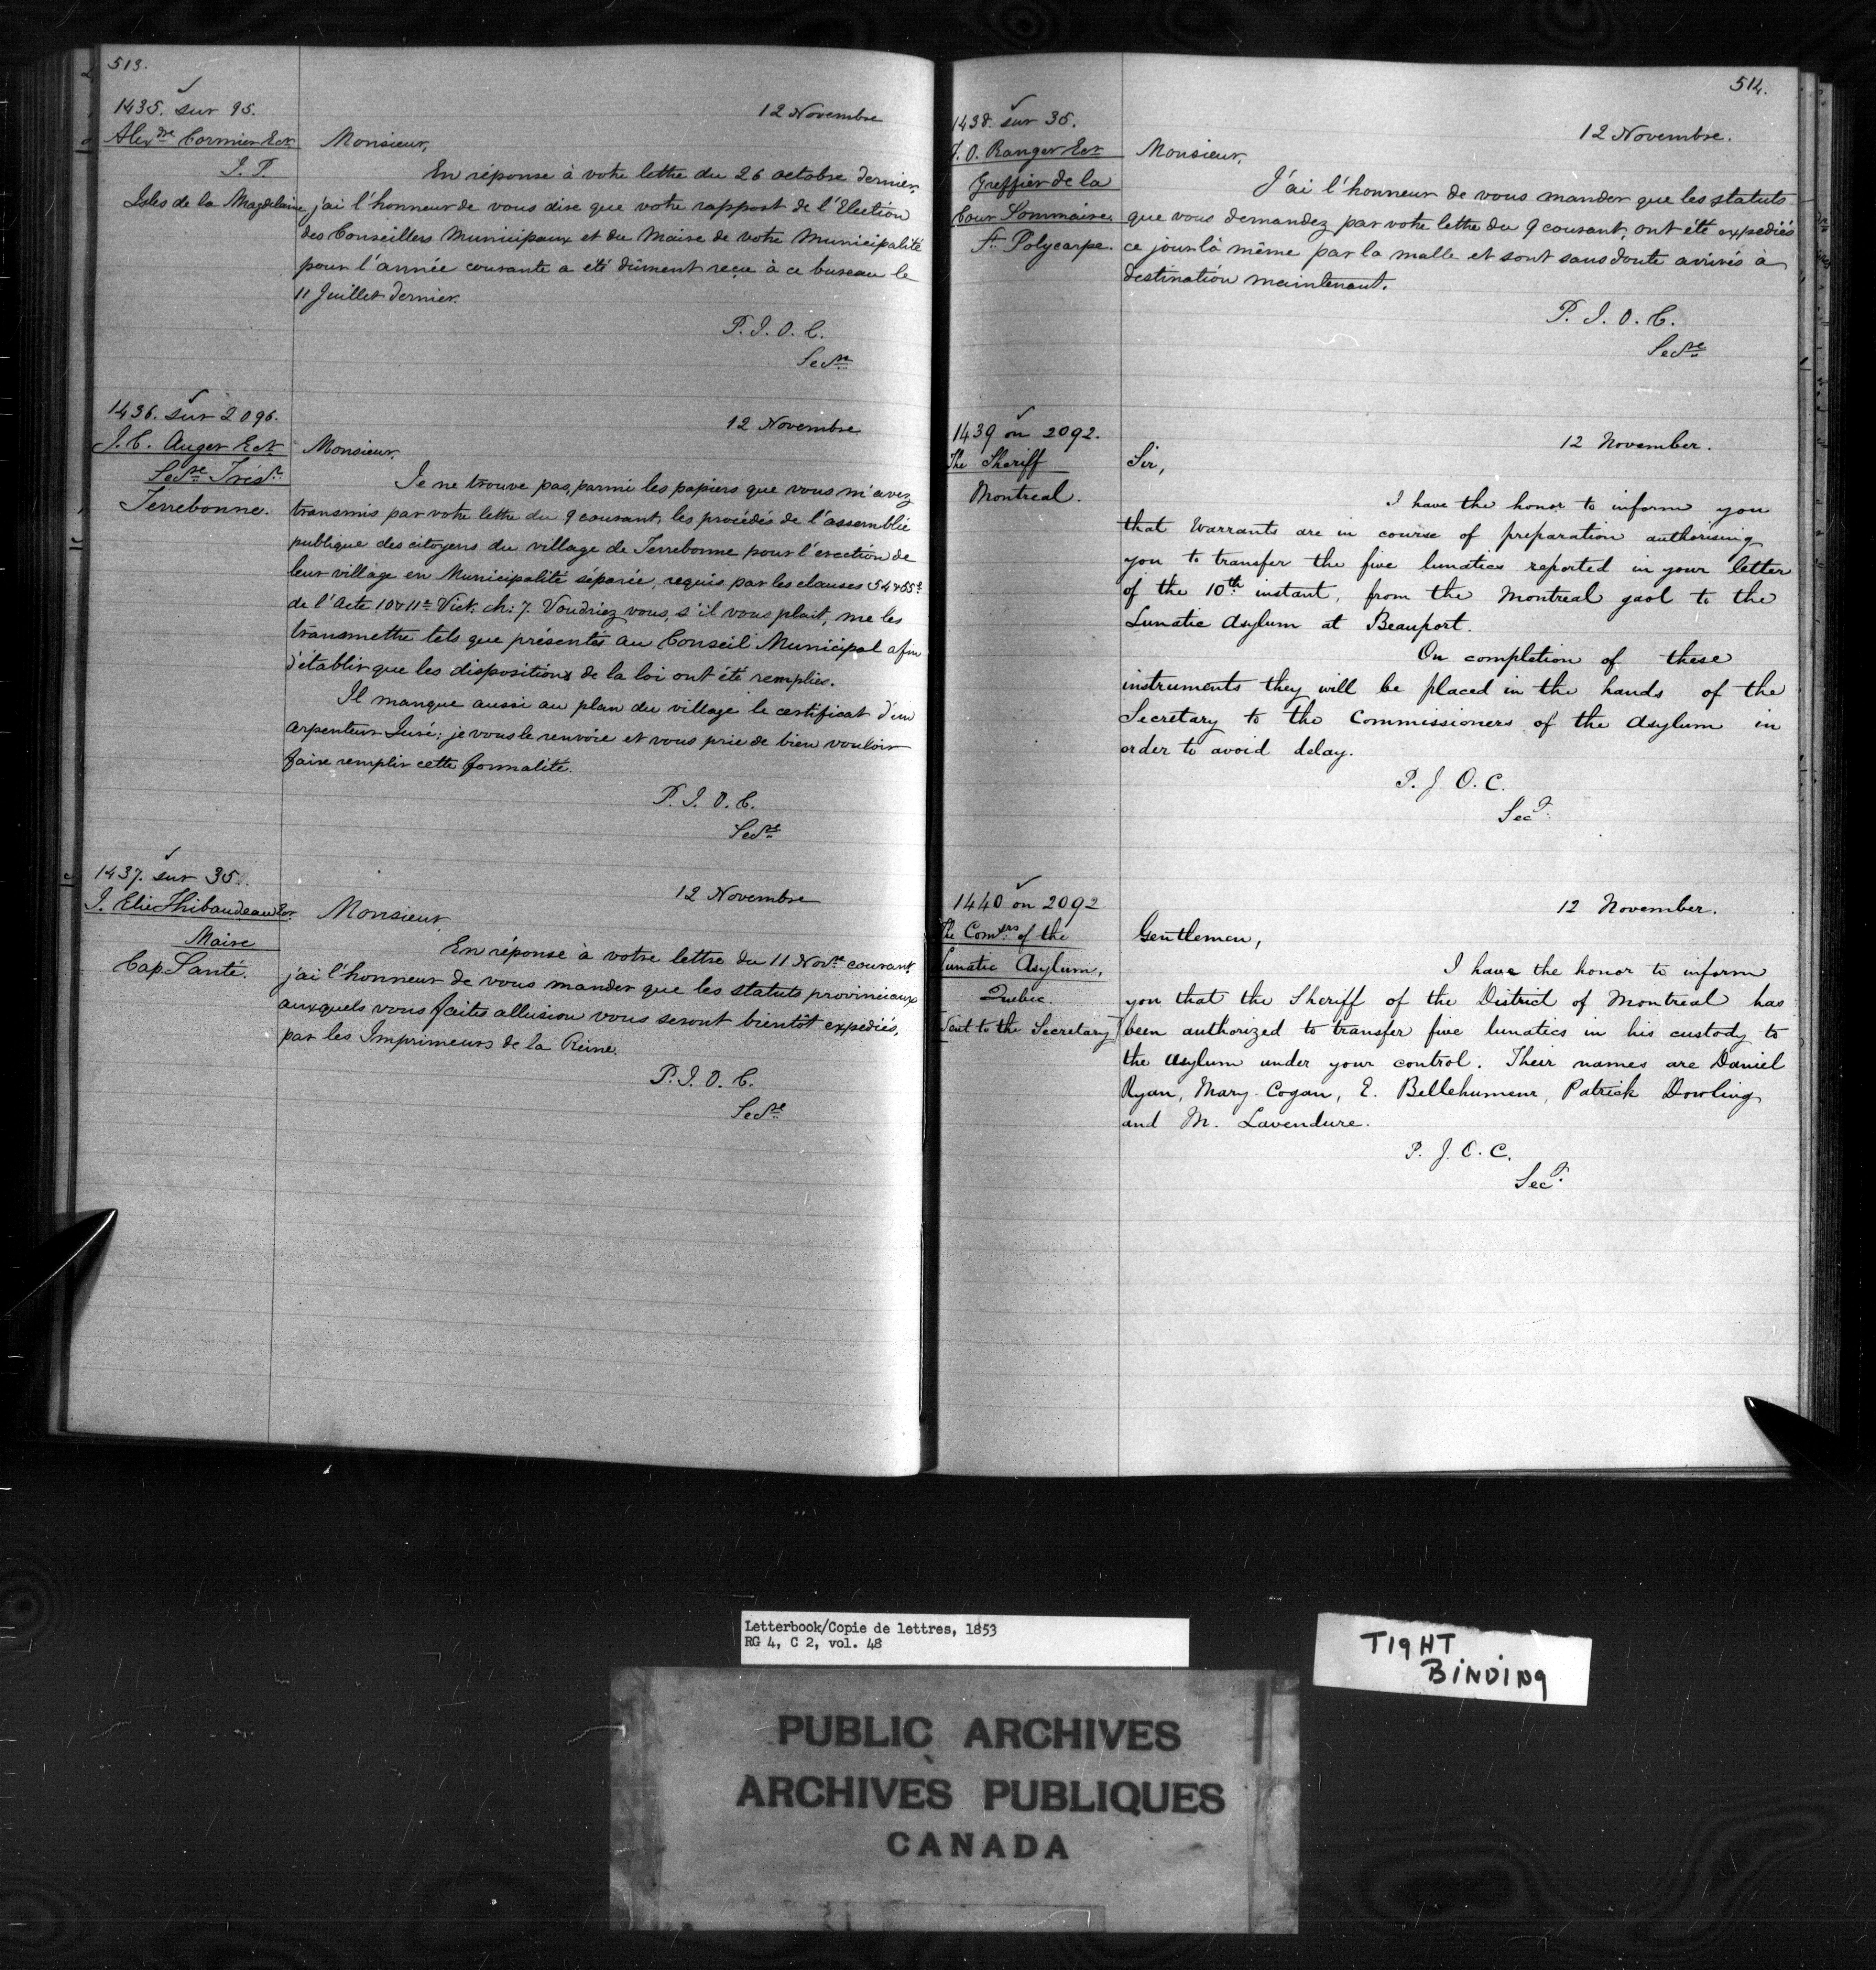 513.
1435. sur 95.
Alexdre Cormier Ecr
J. P.
Isles de la Magdelaine
12 Novembre
Monsieur,
En réponse à votre lettre du 26 octobre dernier,
j'ai l'honneur de vous dire que votre rapport de l'Election
des Conseillers Municipaux et du Maire de votre Municipalité
pour l'année courante a été dûment reçu à ce bureau le
11 Juillet dernier.
P. J. O. C.
Secre
1436. sur 2096.
J. C. Auger Ecr
Secre Trésr
Terrebonne.
12 Novembre
Monsieur,
Je ne trouve pas, parmi les papiers que vous m'avez
transmis par votre lettre du 9 courant, les procédés de l'assemblée
publique des citoyens du village de Terrebonne pour l'érection de
leur village en Municipalité séparée, requis par les clauses 54 & 55e
de l'Acte 10 & 11e Vict. ch: 7. Voudriez vous, s'il vous plait, me les
transmettre tels que présentés au Conseil Municipal afin
d'établir que les dispositions de la loi ont été remplies.
Il manque aussi au plan du village le certificat d'un
arpenteur Juré: je vous le renvoie et vous prie de bien vouloir
faire remplir cette formalité.
P. J. O. C.
Secre
1437. sur 35.
J. Elie Thibaudeau Ecr
Maire
Cap Santé.
12 Novembre
Monsieur,
En réponse à votre lettre du 11 Novre courant
j'ai l'honneur de vous mander que les statuts provinciaux
auxquels vous faites allusion vous seront bientôt expediés,
par les Imprimeurs de la Reine.
P. J. O. C.
Secre
514.
1438. sur 35.
J. O. Ranger Ecr
Greffier de la
Cour Sommaire,
St. Polycarpe.
12 Novembre.
Monsieur,
J'ai l'honneur de vous mander que les statuts
que vous demandez par votre lettre du 9 courant, ont été expediés
ce jour là même par la malle et sont sans doute arrivés à
destination maintenant.
P. J. O. C.
Secre
1439 on 2092.
The Sheriff
Montreal.
12 November.
Sir,
I have the honor to inform you
that Warrants are in course of preparation authorising
you to transfer the five lunatics reported in your letter
of the 10th instant, from the Montreal gaol to the
Lunatic Asylum at Beauport.
On completion of these
instruments they will be placed in the hands of the
Secretary to the Commissioners of the Asylum in
order to avoid delay.
P. J. O. C.
Secy.
1440 on 2092
The Comrs of the
Lunatic Asylum,
Quebec.
[Sent to the Secretary]
12 November.
Gentlemen,
I have the honor to inform
you that the Sheriff of the District of Montreal has
been authorized to transfer five lunatics in his custody to
the Asylum under your control. Their names are Daniel
Ryan, Mary Cogan, E. Bellehumeur, Patrick Dowling
and M. Lavendure.
P. J. O. C.
Secy.
Letterbook/Copie de lettres, 1853
RG 4, C 2, vol. 48
TIGHT
BINDING
PUBLIC ARCHIVES
ARCHIVES PUBLIQUES
CANADA